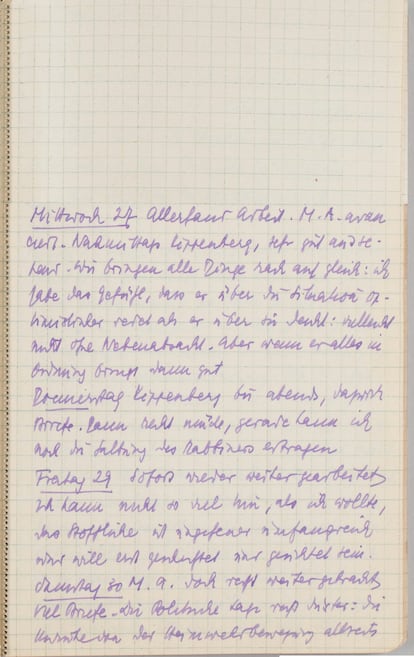 Mittwoch 27 Allerhand Arbeit. M. A. avan
ciert. Nachmittags Kippenberg, sehr gut ausse-
hend. Wir bringen alle Dinge rasch auf gleich: ich
habe das Gefühl, dass er über die Situation op-
timistischer redet als er über sie denkt: vielleicht
nicht ohne Nebenabsicht. Aber wenn er alles in
Ordnung bringt dann gut
Donnerstag Kippenberg bis abends, dazwisch
Briefe. Dann recht müde, gerade kann ich
noch die des Rabbiners ertragen
Freitag 29 Sofort wieder weiter gearbeitet
ich kann nicht so viel tun, als ich wollte,
das Stoffliche ist ungeheuer umfangreich
und will erst gesichtet sein.
Samstag 30 M. A. doch recht weitergebracht
viel Briefe. Die Politische Lage recht düster: die
der Heimwehrbewegung allseits